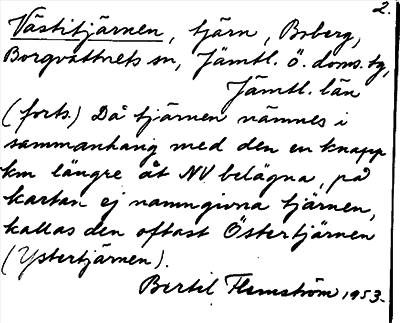 2.
Västitjärnen, tjärn, Boberg,
Borgvattnets sn, Jämtl. ö. doms. tg,
Jämtl. län
(forts.) Då tjärnen nämnes i
sammanhang med den en knapp
km längre åt NV belägna, på
kartan ej namngivna tjärnen,
kallas den oftast Östertjärnen
(Ystertjärnen).
Bertil Flemström 1953.